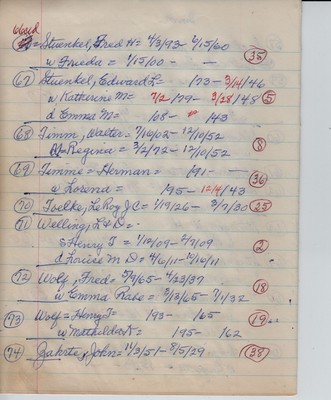 66 Stuenkel, Fred H= 4/3/93- 6/15/60 (35)
w Frieda = 1/15/00- -
(67) Stuenkel, Edward L= 173- 3/14/46
w Katherine M= 7/2/79- 3/28/48 (5)
d Emma M= 108- 143
(68) Timm, Walter= 7/16/02- 12/10/52
Regina= 3/2/72- 12/10/52 (8)
(69) Timme= Herman= 191- -
w Lorena= 195- 12/4/43 (36)
(70) Toelke, LeRoy J C= 1/19/26- 3/7/30 (25)
(71) Welling, L & D=
s Henry T= 1/12/09- 5/7/09 (2)
d Louise M= 4/6/11- 10/16/11
(72) Wolf, Fred= 5/9/65- 4/23/37
w Emma Rabe= 7/1/32 (18)
(73) Wolf= Henry J= 193- 165
w Mathilda K= 195- 162 (19)
(74) Zahrte, John= 11/3/51- 8/5/29 (38)